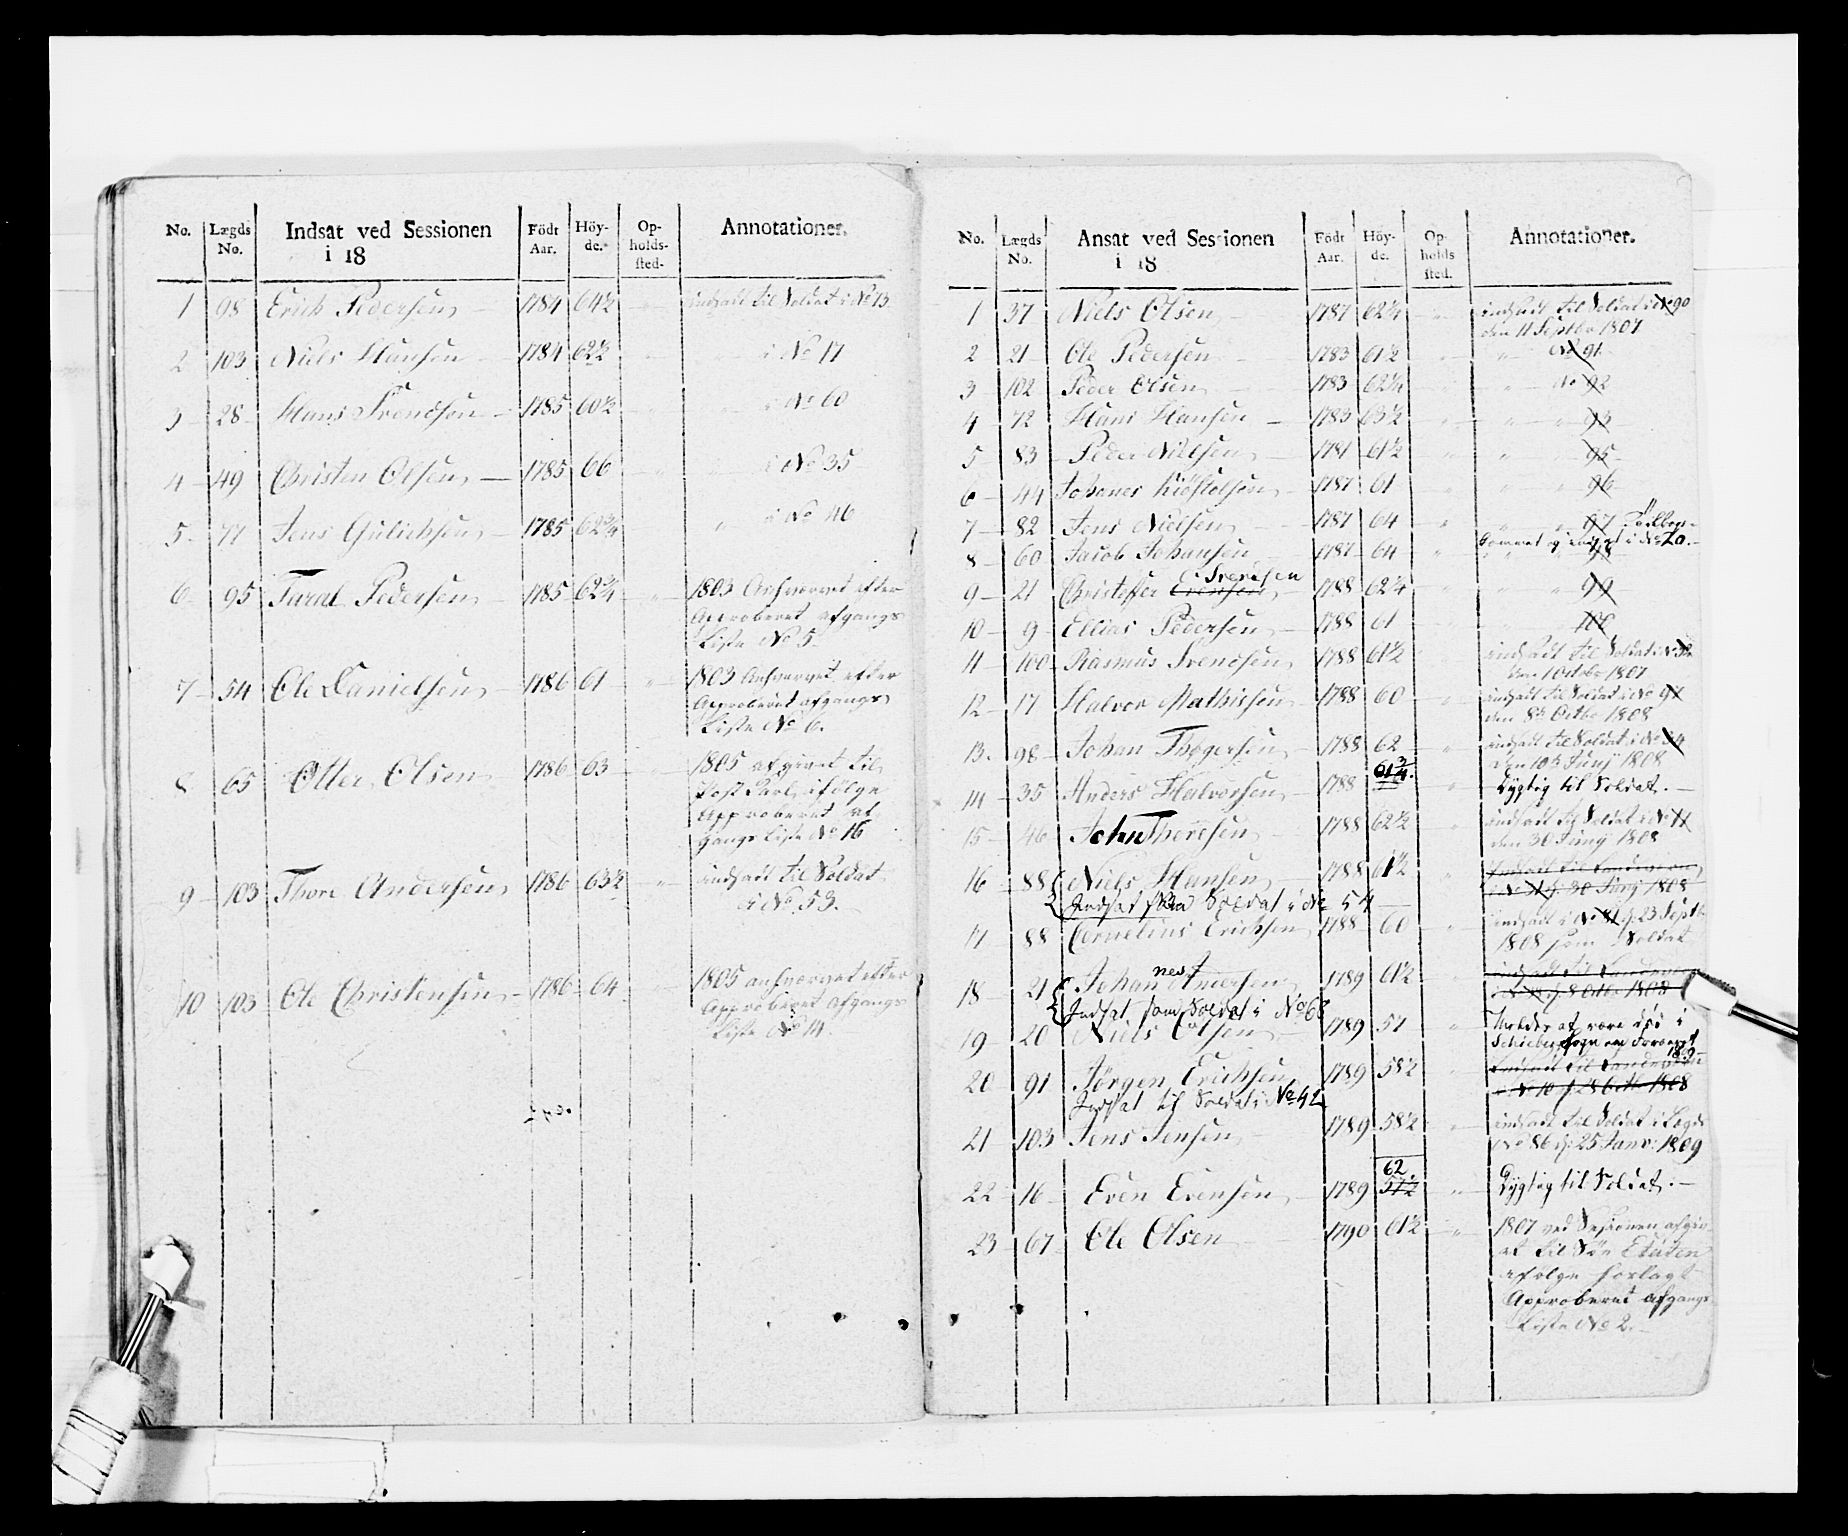 No. Lægds No. Indsat ved Sessionen i 18 Födt Aar. Höyde. Opholdssted. Annotationer.
1 98 Erich Pedersen 1784 64½ indsadt til Soldat i No 13
2 103 Niels Hansen 1784 62½ i No 17
3 28 Hans Svendsen 1785 60½ i No 60
4 49 Christen Olsen 1785 66 i No 35
5 77 Jens Gulichsen 1785 62¾ i No 46
6 95 Taral Pedersen 1785 62¾ 1803 efter
Approberet afgangs
Liste No 5.
7 54 Ole Danielsen 1786 61 1803 efter
Approberet afgangs
Liste No 6.
8 65 Otter Olsen 1786 63 1805 afgivet til
ifölge
Approberet af
gangs Liste No 16
9 103 Thore Andersen 1786 63½ indsadt til Soldat
i No 53.
10 103 Ole Christensen 1786 64 1805 efter
Approberet afgangs
Liste No 14.
No. Lægds No. Ansat ved Sessionen i 18 Födt Aar. Höyde. Opholds sted. Annotationer.
1 37 Niels Olsen 1787 62¼ indsadt til Soldat i No 90
den 11 Septbr 1807
2 21 Ole Pedersen 1783 61½ " No 91
3 102 Peder Olsen 1783 62¼ " No 92
4 72 Hans Hansen 1783 63½ " " 93
5 83 Peder Nielsen 1781 61½ " 95
6 44 Johanes Kiöstelsen 1787 61 " 96
7 82 Jens Nielsen 1787 64 " " 97
8 60 Jacob Johansen 1787 64 i No 20.
9 21 Christoffer Evensen Svensen 1788 62¼ " " 99
10 9 Ellias Pedersen 1788 61 100
11 100 Rasmus Svendsen 1788 61½ indsadt til Soldat i No
den 1 Octobr 1807
12 17 Halvor Mathissen 1788 60 indsadt til Soldat i No 91
den 8de Octbr 1808
13. 98 Johan Thogersen 1788 62 indsadt til Soldat i No 34
den 10de Junj 1808
14 35 Anders Halvorsen 1788 61¾. Dygtig til Soldat.
15 46 John Theresen 1788 62½ indsadt til Soldat i No 11
den 30 Junj 1808
16 88 Niels Hansen 1788 61½ Indsadt til Landeværn
30 Junj 1808
Indsat som Soldat i No 54
17 88 Cornelius Erichsen 1788 60 indsadt i No 81 d. 23 Septbr
1808 som Soldat
18 21 Johannes Andersen 1789 61½ indsadt til Landeværn
8 Octbr 1808
Indsat som Soldat i No 68
19 20 Niels Olsen 1789 57 Meldes at være död i
Schieberg Sogn
20 91 Jörgen Erichsen 1789 58½ Indsadt til Landeværn
No 10 d. 28 Octbr 1808
Indsat til Soldat i No 42
21 103 Jens Jensen 1789 58½ indsadt til Soldat i Lægd
No 86 d. 25 Janv: 1809
22 16 Even Evensen 1789 62 57½ Dygtig til Soldat.
23 67 Ole Olsen 1790 61½ 1807 ved Sessionen afgiv
et til Söe Etaten
efolge forlagt
Approberet afgangs
Liste No 2.